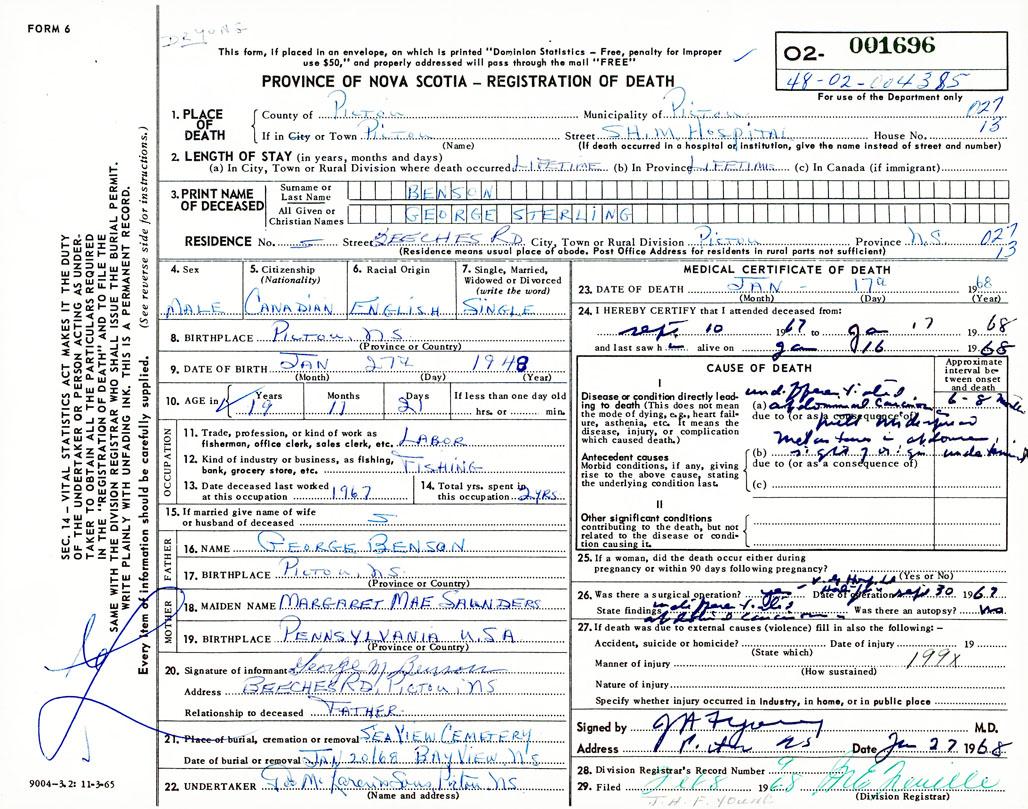 FORM 6
DR YONG
This form, if placed in an envelope, on which is printed "Dominion Statistics – Free, penalty for improper
use $50," and properly addressed will pass through the mail "FREE"
PROVINCE OF NOVA SCOTIA – REGISTRATION OF DEATH
02- 001696
48-02-004385
For use of the Department only
1. PLACE OF DEATH
County of Pictou Municipality of Pictou 027
If in City or Town Pictou Street S.H.M. Hospital House No. 13
(Name) (If death occurred in a hospital or institution, give the name instead of street and number)
2. LENGTH OF STAY (in years, months and days)
(a) In City, Town or Rural Division where death occurred LIFETIME (b) In Province LIFETIME (c) In Canada (if immigrant)
3. PRINT NAME OF DECEASED
Surname or Last Name BENSON
All Given or Christian Names GEORGE STERLING
RESIDENCE No. Street BEECHES RD City, Town or Rural Division Pictou Province N.S. 027
(Residence means usual place of abode. Post Office Address for residents in rural parts not sufficient) 13
4. Sex MALE
5. Citizenship (Nationality) CANADIAN
6. Racial Origin ENGLISH
7. Single, Married, Widowed or Divorced (write the word) SINGLE
8. BIRTHPLACE PICTOU, N.S.
(Province or Country)
9. DATE OF BIRTH JAN 27th 1948
(Month) (Day) (Year)
10. AGE in Years 19 Months 11 Days 21 If less than one day old hrs. or min.
OCCUPATION
11. Trade, profession, or kind of work as fisherman, office clerk, sales clerk, etc. LABOR
12. Kind of industry or business, as fishing, bank, grocery store, etc. FISHING
13. Date deceased last worked at this occupation 1967
14. Total yrs. spent in this occupation 2 YRS
15. If married give name of wife or husband of deceased
FATHER
16. NAME GEORGE BENSON
17. BIRTHPLACE PICTOU, N.S.
(Province or Country)
MOTHER
18. MAIDEN NAME MARGARET MAE SAUNDERS
19. BIRTHPLACE PENNSYLVANIA U.S.A
(Province or Country)
20. Signature of informant George M Benson
Address BEECHES RD, PICTOU, NS
Relationship to deceased FATHER
21. Place of burial, cremation or removal SEAVIEW CEMETERY
Date of burial or removal JAN 20/68 BAYVIEW, N.S.
22. UNDERTAKER Sons Pictou NS
(Name and address)
MEDICAL CERTIFICATE OF DEATH
23. DATE OF DEATH JAN - 17th 1968
(Month) (Day) (Year)
24. I HEREBY CERTIFY that I attended deceased from:
Sept 10 1967 to Ja 17 1968
and last saw h alive on Ja 16 1968
CAUSE OF DEATH
Approximate interval between onset and death
I
Disease or condition directly leading to death (This does not mean the mode of dying, e.g., heart failure, asthenia, etc. It means the disease, injury, or complication which caused death.)
undifferentiated
(a) abdominal Carcinoma 6-8
due to (or as a consequence of)
with widespread
Antecedent causes
Morbid conditions, if any, giving rise to the above cause, stating the underlying condition last.
(b) origin
due to (or as a consequence of)
(c)
II
Other significant conditions contributing to the death, but not related to the disease or condition causing it.
25. If a woman, did the death occur either during pregnancy or within 90 days following pregnancy? (Yes or No)
26. Was there a surgical operation? yes Date of operation Sept 30 1967
State findings undifferentiated Was there an autopsy? no
27. If death was due to external causes (violence) fill in also the following: –
Accident, suicide or homicide? Date of injury 19
(State which)
Manner of injury 199X
(How sustained)
Nature of injury
Specify whether injury occurred in industry, in home, or in public place
Signed by M.D.
Address Pictou NS Date Jan 27 1968
28. Division Registrar's Record Number 9
29. Filed Feb 8 1968
(Division Registrar)
J.H.F. YOUNG
SEC. 14 – VITAL STATISTICS ACT MAKES IT THE DUTY
OF THE UNDERTAKER OR PERSON ACTING AS UNDER-
TAKER TO OBTAIN ALL THE PARTICULARS REQUIRED
IN THE "REGISTRATION OF DEATH" AND TO FILE THE
SAME WITH THE DIVISION REGISTRAR WHO SHALL ISSUE THE BURIAL PERMIT.
WRITE PLAINLY WITH UNFADING INK. THIS IS A PERMANENT RECORD.
Every item of information should be carefully supplied. (See reverse side for instructions.)
9004-3.2: 11-3-65